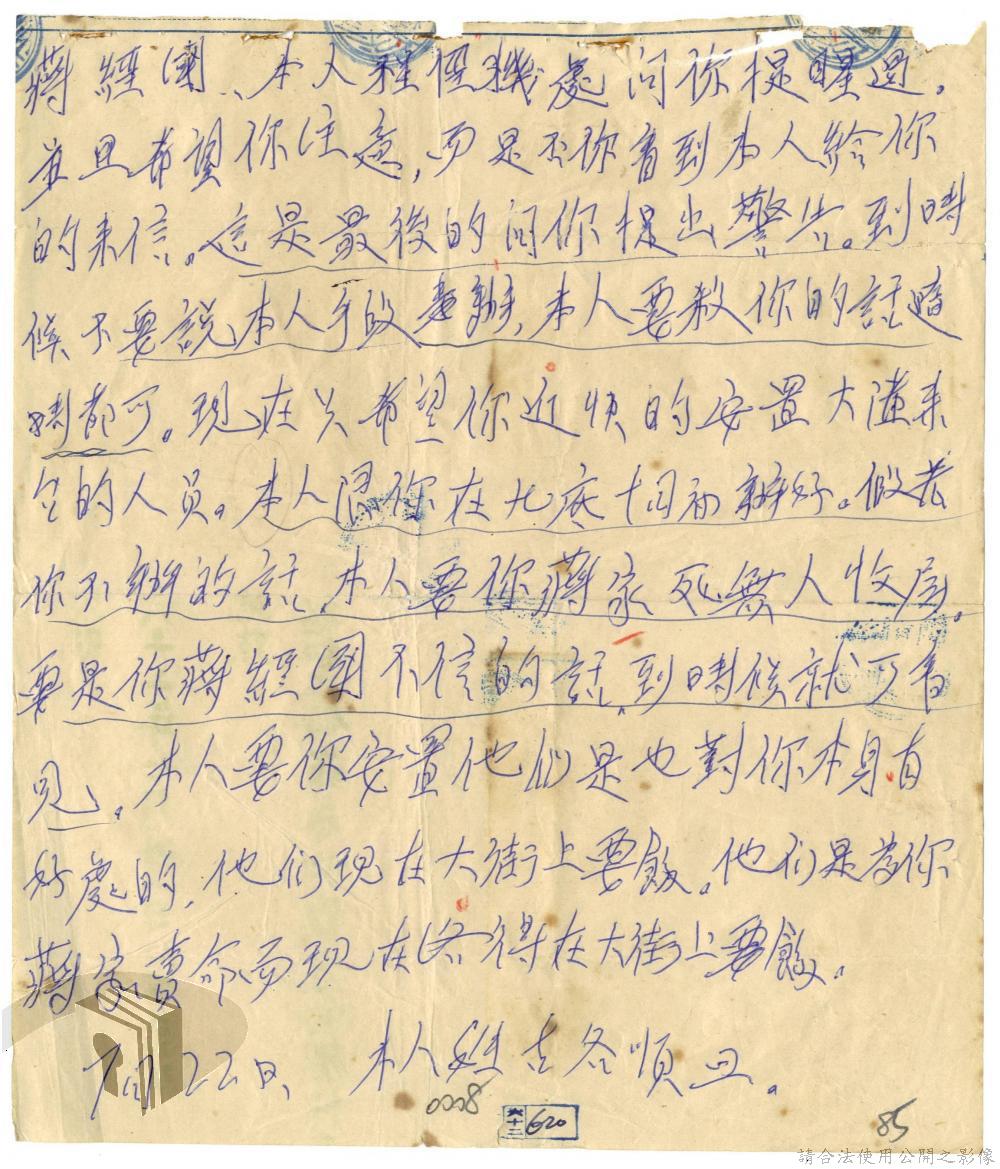 蔣經國、本人經 機處向你提醒過。
并且希望你注意，而是否你看到本人給你
的來信。這是最後的向你提出警告。到時
候不要說本人手段 辣，本人要殺你的話隨
時都可。現在只希望你近快的安置大陸來
台的人員。本人限你在九底十月初辦好。假若
你不辦的話，本人要你蔣家死無人收屍。
要是你蔣經國不信的話，到時候就可看
見。本人要你安置他们是也對你本身有
好處的，他们現在大街上要飯。他们是為你
蔣家賣命而現在 得在大街上要飯。
7月22日、 本人姓古名順
0008
六十二 620
85
請合法使用公開之影像